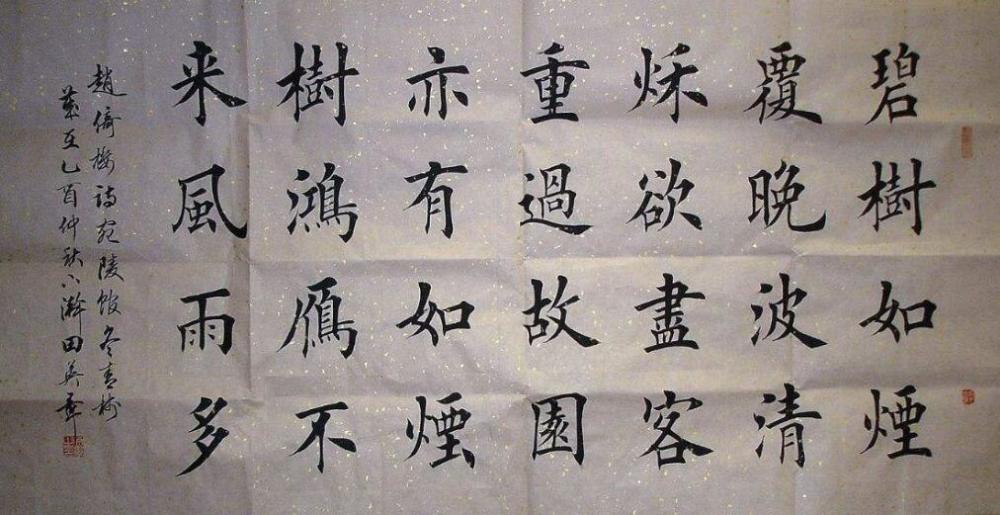 碧樹如煙
覆晚波清
秌欲盡客
重過故園
亦有如煙
樹鴻鴈不
来風雨多
趙倚樓詩宛陵館冬青樹
歲在乙酉仲秋下澣田英章